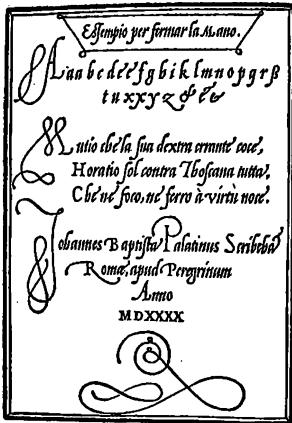 Essempio per firmar la Mano.
Aaabcdeefgbiklmnopqrsß
tuxxyz & & &
Mutio che la sua dextra errante coce,
Horatio sol contra Thoscana tutta,
Che nè foco, ne ferro à virtù noce.
Iohannes Baptista Palatinus Scribebat
Romæ, apud Peregrinum
Anno
MDXXXX